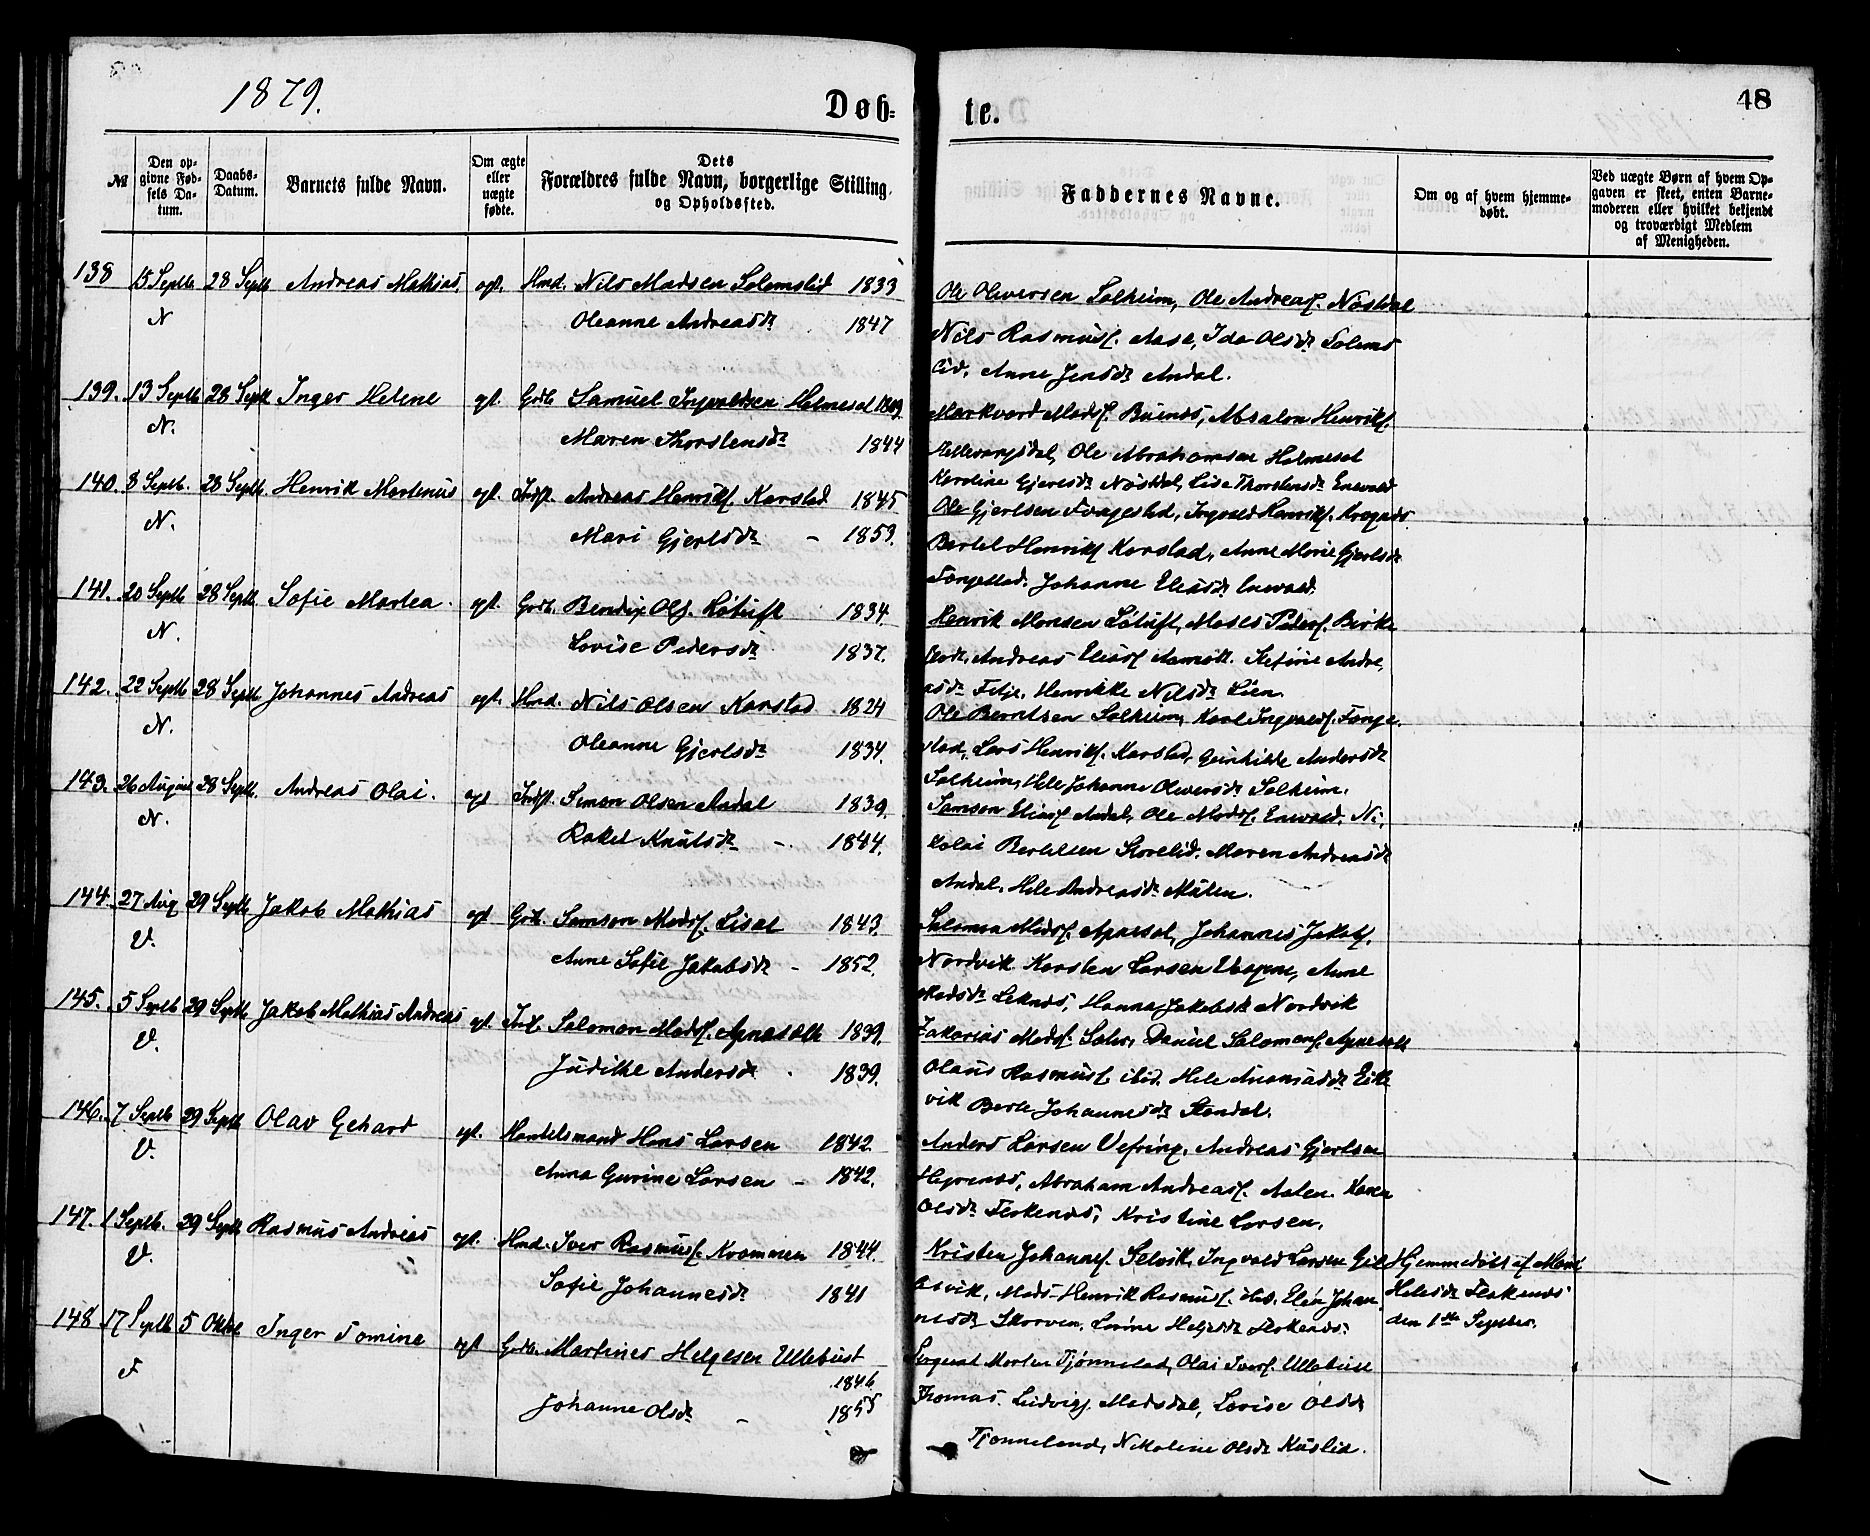 1879.
Døb=
te.
48
№
Den op-
givne Fød-
sels Da-
tum.
Daabs-
Datum.
Barnets fulde Navn.
Om ægte
eller
uægte
fødte.
Dets
Forældres fulde Navn, borgerlige Stilling,
og Opholdssted.
Faddernes Navne.
Om og af hvem hjemme-
døbt.
Ved uægte Børn af hvem Op-
gaven er skeet, enten Barne-
moderen eller hvilket bekjendt
og troværdigt Medlem
af Menigheden.
138 15 Septb 28 Septb Andreas Mathias. ægt. Hmd. Nils Madsen Solemslid 1833
N Oleanne Andreasdr 1847
Ole Oliversen Solheim, Ole Andreas. Nøstdal
Nils Rasmus. Aase, Ida Olsdr Solems
lid, Anne Jensdr Andal.
139. 13 Septb 28 Septb Inger Helene ægt. Grdb Samuel Ingvaldsen Helmesæt
N. Maren Thorstensdr 1844
Markvard Mads. Buenes, Absalon Henriks.
Ole Abrahamsen Holmeset
140. 8 Septb. 28 Septb. Henrik Martinus ægt. Indst. Andreas Henriks. Karstad 1845
N. Mari Gjertsdr – 1853.
Karoline Gjertsdr Nøstdal, Lise Thorstensdr Enevald
Ole Gjertsen Fongestad, Ingvald Henriks.
Bertel Henriks Karstad, Anne Marie Gjertsdr
Fongestad. Johanne Eliasdr Enevald.
141. 20 Septb 28 Septb Sofie Martea. ægt. Grdb. Bendix Ols. Løtuft 1834
N. Lovise Pedersdr 1837.
Henrik Monsen Løtuft, Moses Peders. Birke
Andreas Elias Stefine Andre,
asdr Henrikke Nilsdr Lien.
142. 22 Septb 28 Septb Johannes Andreas ægt. Hmd. Nils Olsen Karstad 1824
N. Oleanne Gjertsdr 1834.
Ole Berntsen Solheim, Karl Ingvalds. Fonge.
stad, Lars Henriks. Karstad, Andersdr
Solheim, Hele Johanne Oliversdr Solheim.
143. 26 August 28 Septb. Andreas Olai. ægt Indst. Simon Olsen Andal 1839.
N. Rakel Knutsdr – 1844.
Samson Elias Andal, Ole Mads. Enevald. Ni.
kolai Bertelsen Storelid. Maren Andreasdr
Andal. Hele Andreasdr
144. 27 Aug 29 Septb Jakob Mathias ægt Grdb. Samson Mads. Liset 1843.
V. Anne Sofie Jakobsdr – 1852.
Salomon Mads. Johannes Jakobs.
Nordvik Karsten Larsen Anne
Madsdr Leknes, Hanna Jakobsdr Nordvik
145. 5 Septb 29 Septb Jakob Mathias Andreas ægt. Salomon Mads. 1839.
V. Judithe Andersdr 1839.
Zakarias Mads. Daniel Salomons.
Olaus Rasmus. ibid. Hele Eike
vik Berte Johannesdr Stendal.
146. 7 Septb 29 Septb Olav Gehard ægt. Handelsmand Hans Larsen 1842
V. Anna Gurine Larsen – 1842.
Anders Larsen Vefring. Andreas Gjertsen
Abraham Andreas. Aalen. Karen
Olsdr Flokenes, Kristine Larsen.
147. 1 Septb. 29 Septb Rasmus Andreas ægt. Hmd. Iver Rasmus. Krammen 1844.
V. Sofie Johannesdr 1841
Kristen Johannes. Selvik, Ingvald Larsen Gil
Mads Henrik Rasmus. Elen Johan
nesdr Skorven, Lovine Helgesdr Flokenes.
Hjemmedøbt af
Helesdr Flokenes
den 1ste Septbr.
148 17 Septb 5 Oktob Inger Tomine ægt Grdb. Martines Helgesen Ullebust
1846
F Johanne Olsdr – 1855
Sergeant Morten Tjønneland, Olai Ivers. Ullebust
Thomas Ludvigs. Mardal, Lovise Olsdr
Tjønneland, Nikoline Olsdr Kuslid.